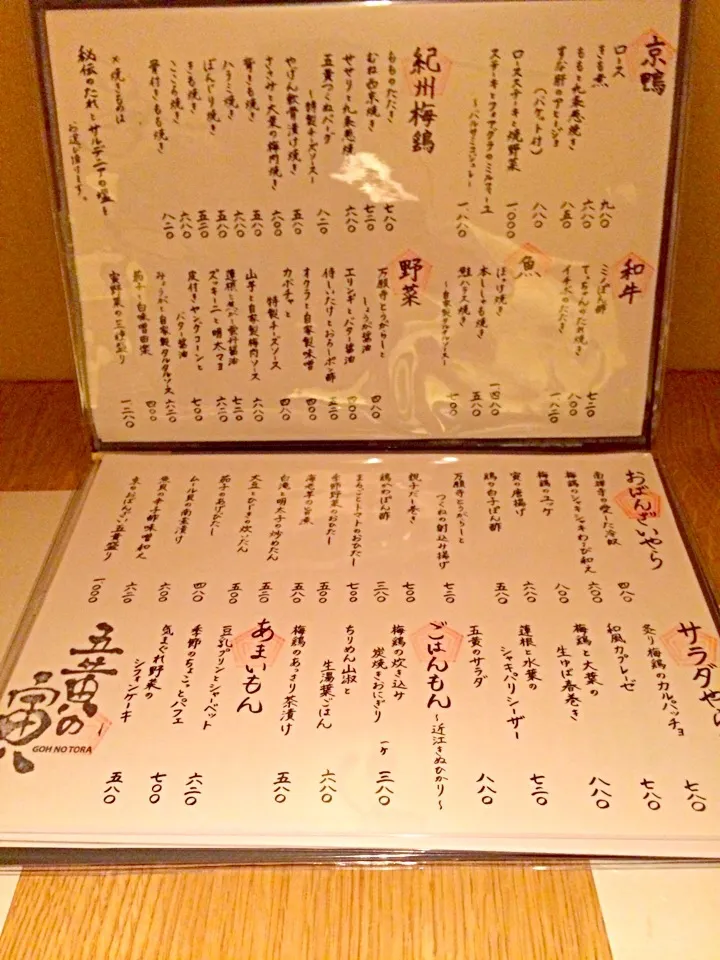 京鴨
ロース 九八〇
きも煮 六八〇
ももと九条葱焼き 八五〇
ずな肝のアヒージョ
(バケット付) 八八〇
ロースステーキと焼野菜 一〇〇〇
ステーキとフォアグラのミルフィーユ
〜バルサミコジュレ〜 一、八八〇
紀州梅鶏
もものたたき 七八〇
むね西京焼き 七二〇
せせりと九条葱焼 六八〇
五黄つくねバーグ
〜特製チーズソース〜 八二〇
やげん軟骨漬け焼き 五八〇
ささみと大葉の梅肉焼き 六〇〇
背きも焼き 五八〇
ハラミ焼き 六八〇
ぼんじり焼き 五二〇
きも焼き 五八〇
こころ焼き 六八〇
骨付きもも焼き 八二〇
※焼きものは
秘伝のたれとサルデニアの塩で
お選び頂けます。
和牛
ミノぽん酢 七二〇
てっちゃんのたれ焼き 八〇〇
イチボのたたき 一、八二〇
魚
ほっけ焼き 一、四八〇
本ししゃも焼き 五八〇
鮭ハラス焼き
〜自家製タルタルソース〜 七〇〇
野菜
万願寺とうがらしと
しょうが醤油 四八〇
エリンギとバター醤油 四〇〇
侍しいたけとおろしポン酢 五二〇
オクラと自家製味噌 四〇〇
カボチャと
特製チーズソース 四八〇
山芋と自家製梅肉ソース 六八〇
蓮根と 七二〇
ズッキーニと明太マヨ 六二〇
皮付きヤングコーンと
バター醤油 七〇〇
みょうがと自家製タルタルソース 六二〇
茄子と白味噌田楽 四〇〇
寅野菜の三種盛り 一、二八〇
おばんざいやら
南禅寺の愛した冷奴 四八〇
梅鶏のシャキシャキわさび和え 六〇〇
梅鶏のユッケ 八〇〇
寅の唐揚げ 六八〇
鶏の白子ぽん酢 五八〇
万願寺とうがらしと
つくねの射込み揚げ 七二〇
親子だし巻き 七〇〇
鶏かわぽん酢 三八〇
まるごとトマトのおひたし 七〇〇
季節野菜のおひたし 五〇〇
海老芋の旨煮 五八〇
白滝と明太子の炒めたん 五二〇
大豆とひじきの炊いたん 五〇〇
茄子のあげびたし 五〇〇
ムール貝の南蛮漬け 四八〇
魚貝の辛子酢味噌和え 六〇〇
京のおばんざい五黄盛り 一、〇〇〇
サラダや
炙り梅鶏のカルパッチョ 七八〇
和風カプレーゼ 七八〇
梅鶏と大葉の
生ゆば春巻き 八八〇
蓮根と水菜の
シャキパリシーザー 七二〇
五黄のサラダ 八八〇
ごはんもん
〜近江きぬひかり〜
梅鶏の炊き込み
炭焼きおにぎり 一ケ 三八〇
ちりめん山椒と
生湯葉ごはん 六八〇
梅鶏のあっさり茶漬け 五八〇
あまいもん
豆乳プリンとシャーベット 六二〇
季節のちょこっとパフェ 七〇〇
気まぐれ野菜の
シフォンケーキ 五八〇
五黄の寅
GOH NO TORA